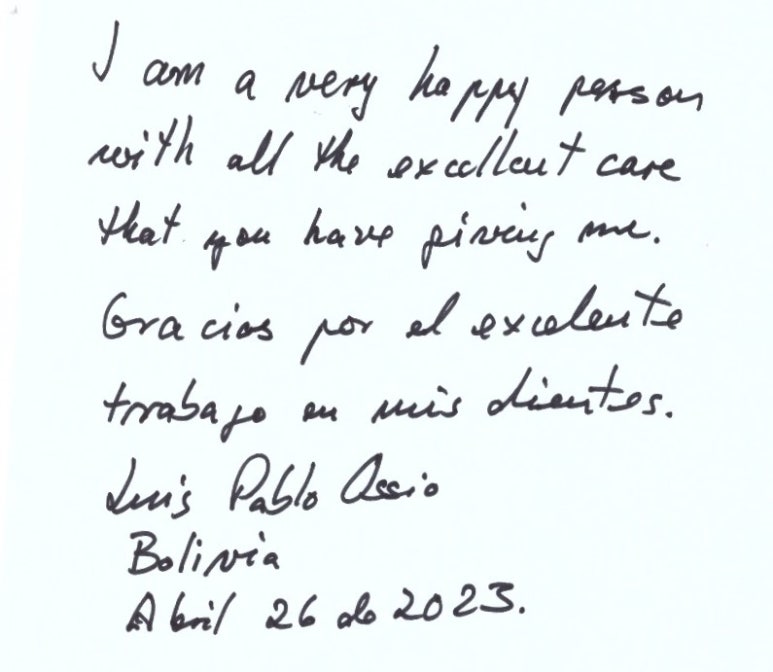 I am a very happy person
with all the excellent care
that you have giving me.
Gracias por el excelente
trabajo en mis dientes.
Luis Pablo Ossio
Bolivia
Abril 26 de 2023.